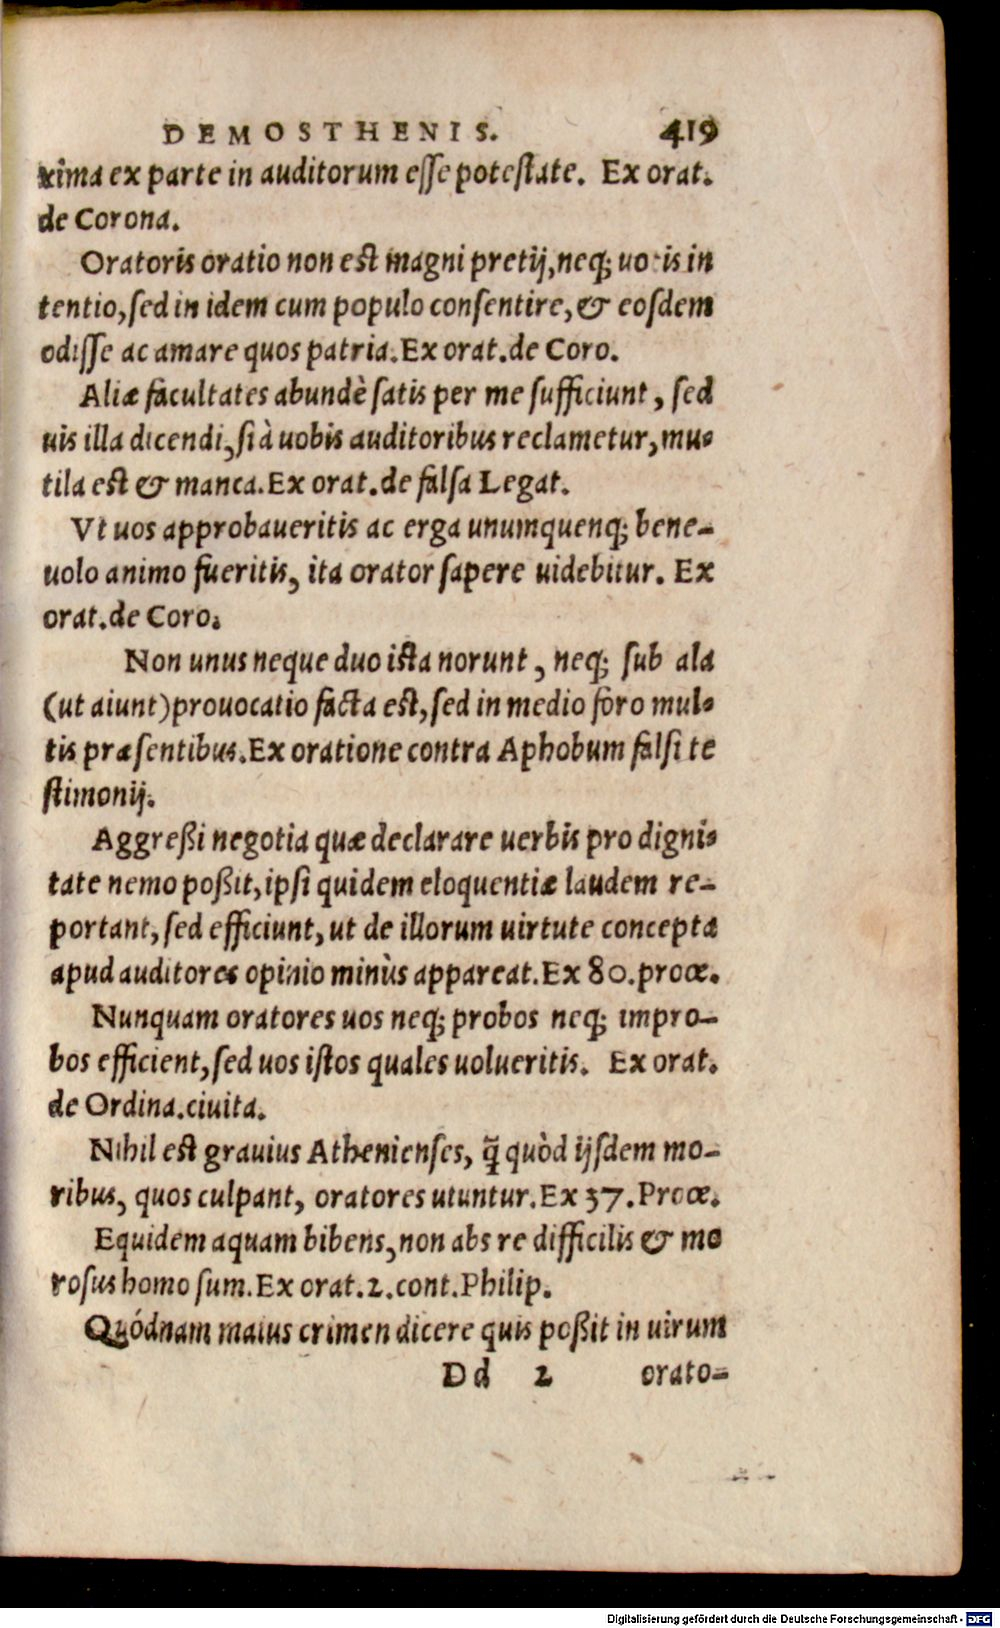 DEMOSTHENIS. 419
xima ex parte in auditorum esse potestate. Ex orat.
de Corona.
Oratoris oratio non est magni pretij, neq; uocis in
tentio, sed in idem cum populo consentire, & eosdem
odisse ac amare quos patria. Ex orat. de Coro.
Aliæ facultates abundè satis per me sufficiunt, sed
uis illa dicendi, si à uobis auditoribus reclametur, mu-
tila est & manca. Ex orat. de falsa Legat.
Vt uos approbaueritis ac erga unumquenq; bene-
uolo animo fueritis, ita orator sapere uidebitur. Ex
orat. de Coro.
Non unus neque duo ista norunt, neq; sub ala
(ut aiunt) prouocatio facta est, sed in medio foro mul-
tis præsentibus. Ex oratione contra Aphobum falsi te
stimonij.
Aggreßi negotia quæ declarare uerbis pro digni-
tate nemo poßit, ipsi quidem eloquentiæ laudem re-
portant, sed efficiunt, ut de illorum uirtute concepta
apud auditores opinio minùs appareat. Ex 80. proœ.
Nunquam oratores uos neq; probos neq; impro-
bos efficient, sed uos istos quales uolueritis. Ex orat.
de Ordina. ciuita.
Nihil est grauius Athenienses, q̃ quòd ijsdem mo-
ribus, quos culpant, oratores utuntur. Ex 37. Proœ.
Equidem aquam bibens, non abs re difficilis & mo
rosus homo sum. Ex orat. 2. cont. Philip.
Quódnam maius crimen dicere quis poßit in uirum
Dd 2 orato-
Digitalisierung gefördert durch die Deutsche Forschungsgemeinschaft - DFG